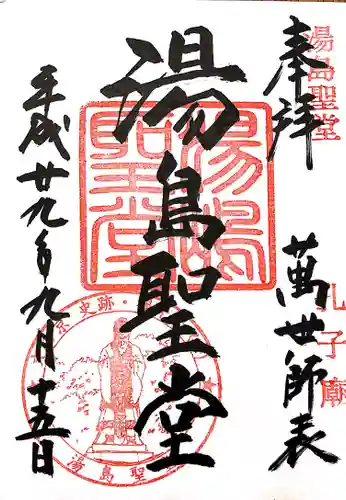 奉拝
湯島聖堂
萬世師表
孔子廟
湯島聖堂
湯島聖堂
史跡
湯島聖堂
平成廿九年九月十五日